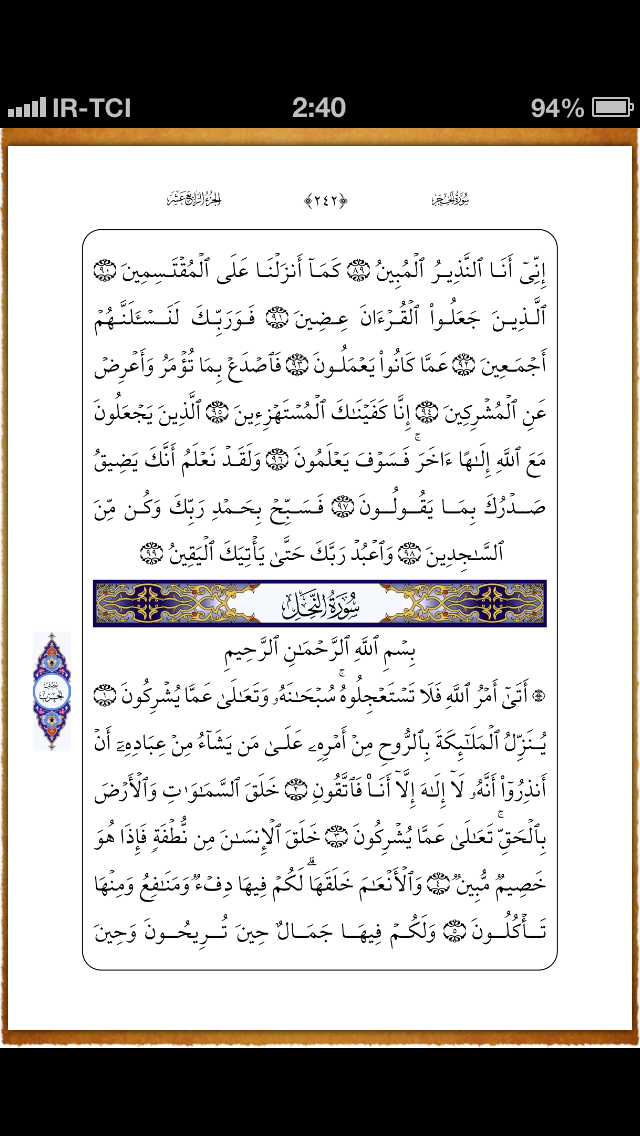 IR-TCI 2:40 94%
سُورَةُ الحِجْر ﴿٢٤٢﴾ الجُزْءُ الرَّابِعَ عَشَرَ
إِنِّىٓ أَنَا ٱلنَّذِيرُ ٱلْمُبِينُ ٨٩ كَمَآ أَنزَلْنَا عَلَى ٱلْمُقْتَسِمِينَ ٩٠
ٱلَّذِينَ جَعَلُوا۟ ٱلْقُرْءَانَ عِضِينَ ٩١ فَوَرَبِّكَ لَنَسْـَٔلَنَّهُمْ
أَجْمَعِينَ ٩٢ عَمَّا كَانُوا۟ يَعْمَلُونَ ٩٣ فَٱصْدَعْ بِمَا تُؤْمَرُ وَأَعْرِضْ
عَنِ ٱلْمُشْرِكِينَ ٩٤ إِنَّا كَفَيْنَـٰكَ ٱلْمُسْتَهْزِءِينَ ٩٥ ٱلَّذِينَ يَجْعَلُونَ
مَعَ ٱللَّهِ إِلَـٰهًا ءَاخَرَ ۚ فَسَوْفَ يَعْلَمُونَ ٩٦ وَلَقَدْ نَعْلَمُ أَنَّكَ يَضِيقُ
صَدْرُكَ بِمَا يَقُولُونَ ٩٧ فَسَبِّحْ بِحَمْدِ رَبِّكَ وَكُن مِّنَ
ٱلسَّـٰجِدِينَ ٩٨ وَٱعْبُدْ رَبَّكَ حَتَّىٰ يَأْتِيَكَ ٱلْيَقِينُ ٩٩
سُورَةُ النَّحْلِ
بِسْمِ ٱللَّهِ ٱلرَّحْمَـٰنِ ٱلرَّحِيمِ
نِصْفُ الحِزْب
۞ أَتَىٰٓ أَمْرُ ٱللَّهِ فَلَا تَسْتَعْجِلُوهُ ۚ سُبْحَـٰنَهُۥ وَتَعَـٰلَىٰ عَمَّا يُشْرِكُونَ ١
يُنَزِّلُ ٱلْمَلَـٰٓئِكَةَ بِٱلرُّوحِ مِنْ أَمْرِهِۦ عَلَىٰ مَن يَشَآءُ مِنْ عِبَادِهِۦٓ أَنْ
أَنذِرُوٓا۟ أَنَّهُۥ لَآ إِلَـٰهَ إِلَّآ أَنَا۠ فَٱتَّقُونِ ٢ خَلَقَ ٱلسَّمَـٰوَٰتِ وَٱلْأَرْضَ
بِٱلْحَقِّ ۚ تَعَـٰلَىٰ عَمَّا يُشْرِكُونَ ٣ خَلَقَ ٱلْإِنسَـٰنَ مِن نُّطْفَةٍ فَإِذَا هُوَ
خَصِيمٌ مُّبِينٌ ٤ وَٱلْأَنْعَـٰمَ خَلَقَهَا ۗ لَكُمْ فِيهَا دِفْءٌ وَمَنَـٰفِعُ وَمِنْهَا
تَأْكُلُونَ ٥ وَلَكُمْ فِيهَا جَمَالٌ حِينَ تُرِيحُونَ وَحِينَ